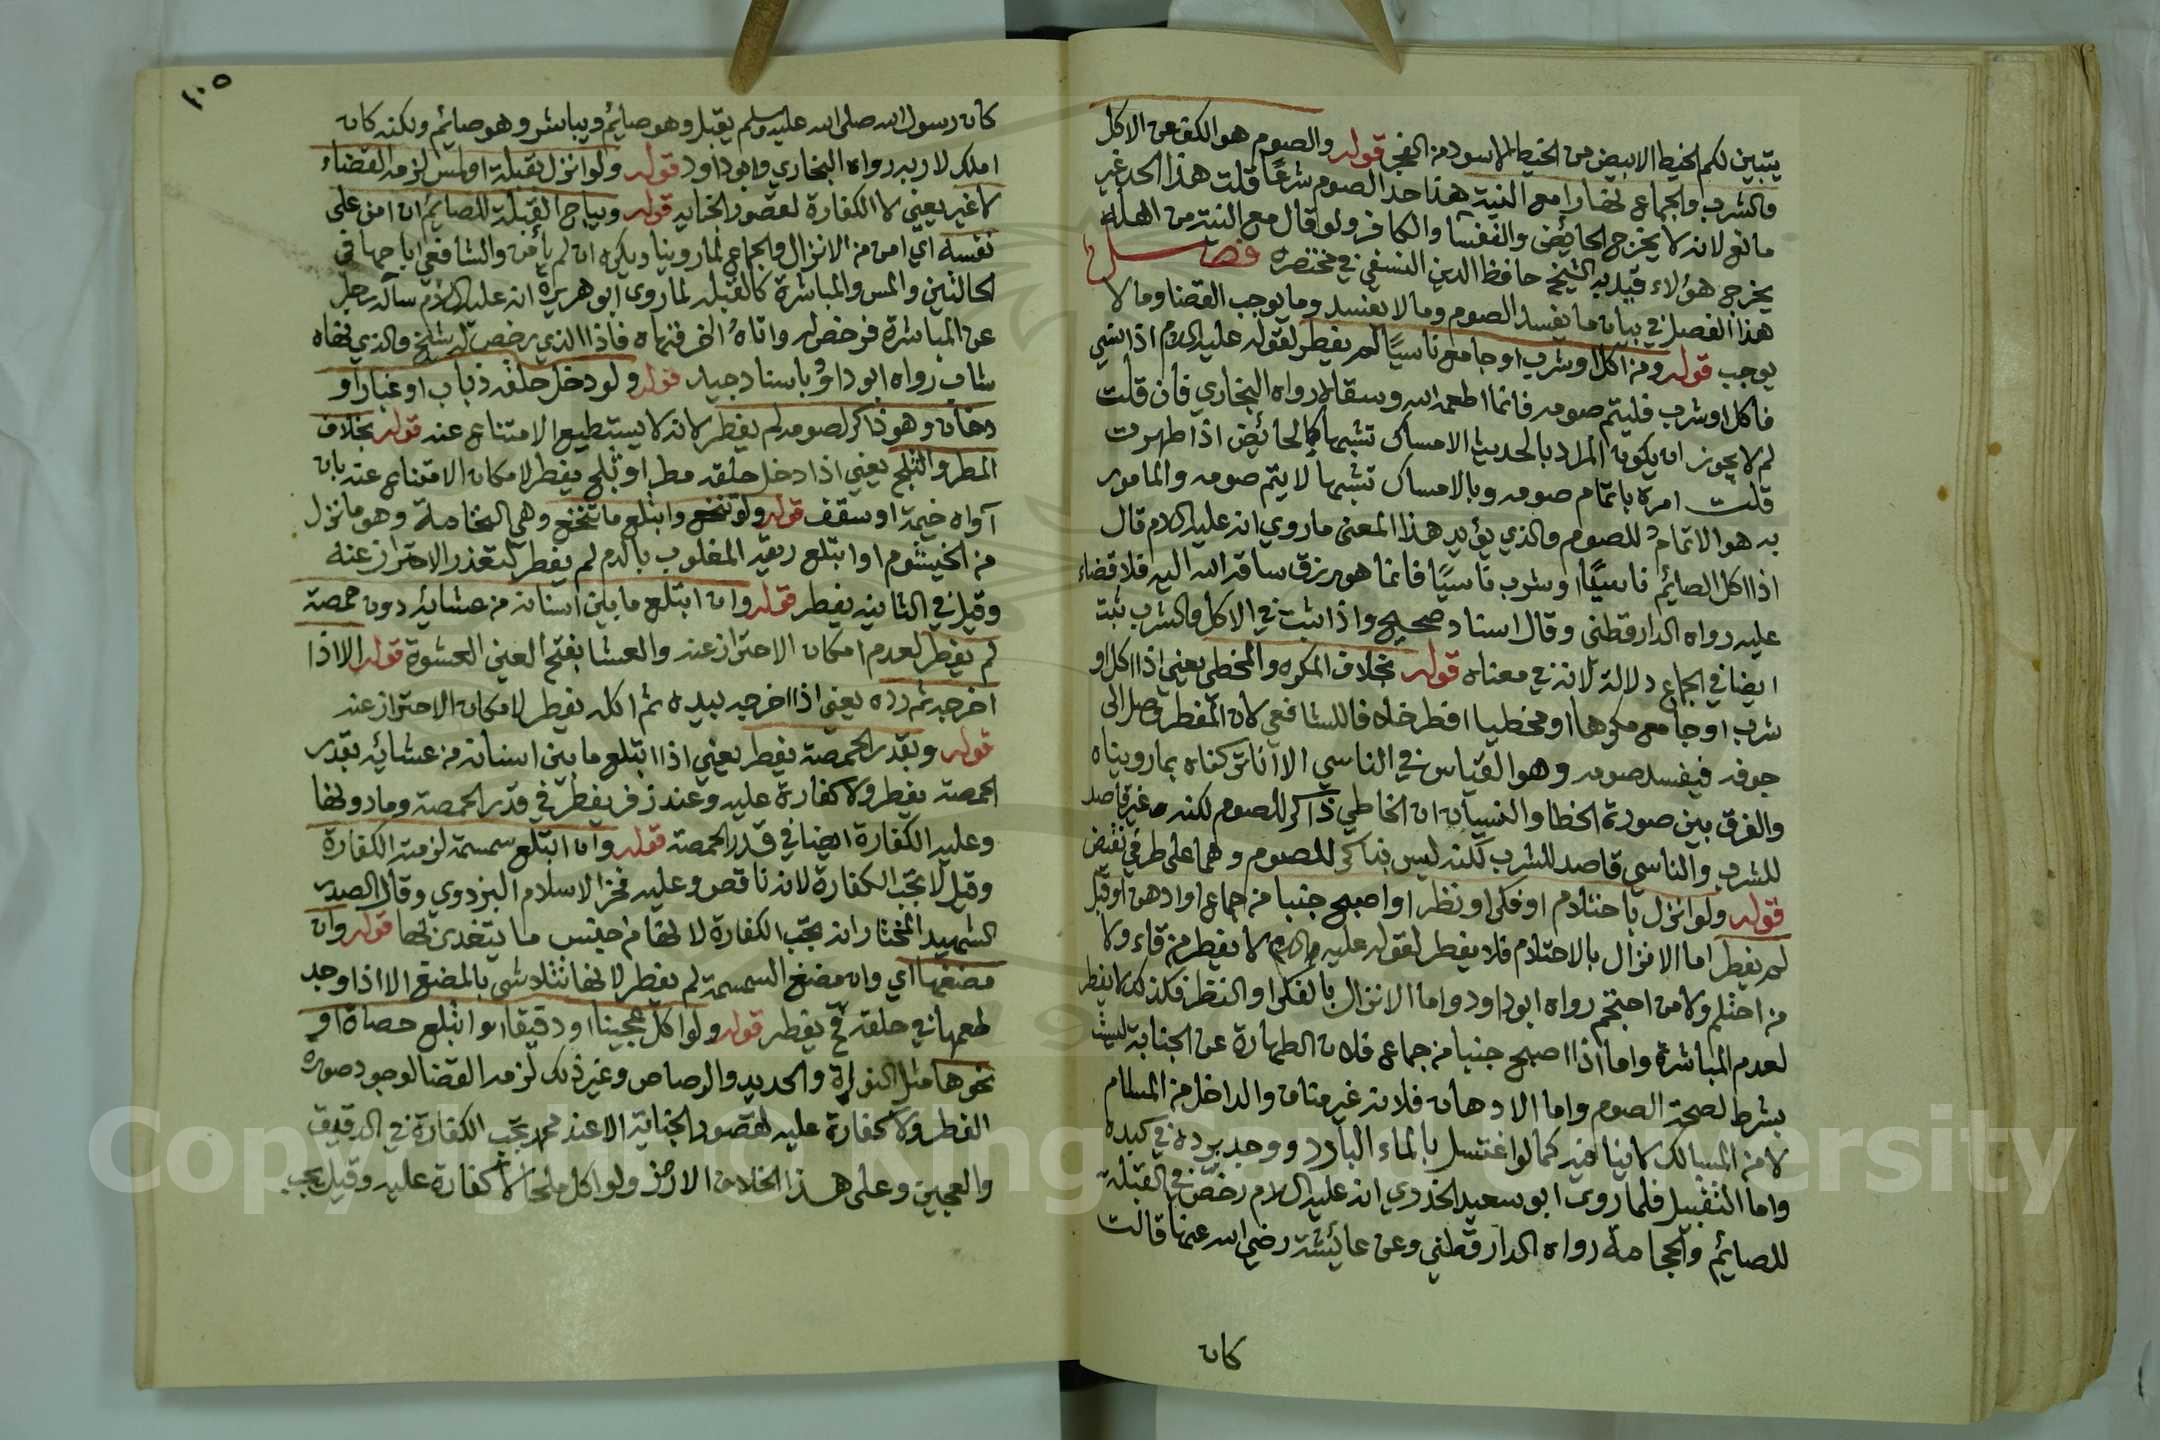 يتبين لكم الخيط الابيض من الخيط الاسود من الفجر قوله والصوم هو الكف عن الاكل
والشرب والجماع نهارا مع النية هذا حد الصوم شرعًا قلت هذا الحد غير
مانع لانه لا يخرج الحائض والنفسا والكافر ولو قال مع النية من اهله
يخرج هؤلاء قيد به الشيخ حافظ الدين النسفي في مختصره فصل
هذا الفصل في بيان ما يفسد الصوم وما لا يفسد وما يوجب القضا وما لا
يوجب قوله ومن اكل او شرب او جامع ناسيًا لم يفطر لقوله عليه السلام اذا نسي
فاكل او شرب فليتم صومه فانما اطعمه الله وسقاه رواه البخاري فان قلت
لم لا يجوز ان يكون المراد بالحديث الامساك تشبها كالحائض اذا طهرت
قلت امره باتمام صومه وبالامساك تشبها لا يتم صومه والمامور
به هو الاتمام للصوم والذي يؤيد هذا المعنى ما روي انه عليه السلام قال
اذا اكل الصائم ناسيًا او شرب ناسيًا فانما هو رزق ساقه الله اليه فلا قضاء
عليه رواه الدارقطني وقال اسناد صحيح واذا ثبت في الاكل والشرب ثبت
ايضا في الجماع دلالة لانه في معناه قوله بخلاف المكره والمخطي يعني اذا اكل او
شرب او جامع مكرها او مخطيا افطر خلافا للشافعي لان المفطر وصل الى
جوفه فيفسد صومه وهو القياس في الناسي الا انا تركناه بما رويناه
والفرق بين صورة الخطا والنسيان ان الخاطي ذاكر للصوم لكنه غير قاصد
للشرب والناسي قاصد للشرب لكنه ليس بذاكر للصوم وهما على طرفي نقيض
قوله ولو انزل باحتلام او فكر او نظر او اصبح جنبا من جماع او ادهن او قبل
لم يفطر اما الانزال بالاحتلام فلا يفطر لقوله عليه السلام لا يفطر من قاء ولا
من احتلم ولا من احتجم رواه ابو داود واما الانزال بالفكر او النظر فكذلك لا يفطر
لعدم المباشرة واما اذا اصبح جنبا من جماع فلان الطهارة عن الجنابة ليست
بشرط لصحة الصوم واما الادهان فلانه غير مناف والداخل من المسام
لا من المسالك لا ينافيه كما لو اغتسل بالماء البارد ووجد برده في كبده
واما التقبيل فلما روى ابو سعيد الخدري انه عليه السلام رخص في القبلة
للصايم والحجامة رواه الدارقطني وعن عائشة رضي الله عنها قالت
كان
١٠٥
كان رسول الله صلى الله عليه وسلم يقبل وهو صائم ويباشر وهو صائم ولكنه كان
املككم لاربه رواه البخاري وابو داود قوله ولو انزل بقبلة او لمس لزمه القضاء
لا غير يعني لا الكفارة لقصور الجنايه قوله ويباح القبلة للصائم ان امن على
نفسه اي امن من الانزال والجماع لما روينا ويكره ان لم يأمن والشافعي اباحها في
الحالتين والمس والمباشرة كالقبلة لما روى ابو هريرة انه عليه السلام سأله رجل
عن المباشرة فرخص له واتاه اخر فنهاه فاذا الذي رخص له شيخ والذي نهاه
شاب رواه ابو داؤد باسناد جيد قوله ولو دخل حلقه ذباب او غبار او
دخان وهو ذاكر لصومه لم يفطر لانه لا يستطيع الامتناع عنه قوله بخلاف
المطر والثلج يعني اذا دخل حلقه مطر او ثلج يفطر لامكان الامتناع عنه بان
آواه خيمة او سقف قوله ولو تنخع وابتلع ما تنخع وهي النخامة وهو ما نزل
من الخيشوم او ابتلع ريقه المغلوب بالدم لم يفطر لتعذر الاحتراز عنه
وقيل في الثانيه يفطر قوله وان ابتلع ما بين اسنانه من عشائه دون حمصة
لم يفطر لعدم امكان الاحتراز عنه والعشا بفتح العين العشوة قوله الا اذا
اخرجه ثم رده يعني اذا اخرجه بيده ثم اكله يفطر لامكان الاحتراز عنه
قوله وبقدر الحمصة يفطر يعني اذا ابتلع ما بين اسنانه من عشائه بقدر
الحمصة يفطر ولا كفارة عليه وعند زفر يفطر في قدر الحمصة وما دونها
وعليه الكفارة ايضا في قدر الحمصة قوله وان ابتلع سمسمة لزمته الكفارة
وقيل لا تجب الكفارة لانه ناقص وعليه فخر الاسلام البزدوي وقال الصدر
الشهيد المختار انه تجب الكفارة لانها من جنس ما يتغذى بها قوله وان
مضغها اي وان مضغ السمسمة لم يفطر لانها تتلاشى بالمضغ الا اذا وجد
طعمها في حلقه فح يفطر قوله ولو اكل عجينا او دقيقا او ابتلع حصاة او
نحوها مثل النواة والحديد والرصاص وغير ذلك لزمه القضا لوجود صورة
الفطر ولا كفارة عليه لقصور الجناية الا عند محمد تجب الكفارة في الدقيق
والعجين وعلى هذا الخلاف الارز ولو اكل ملحا لا كفارة عليه وقيل يجب
Copyright © King Saud University